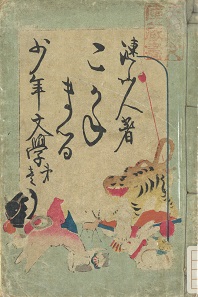 漣山人著
こがね
まる
少年文學